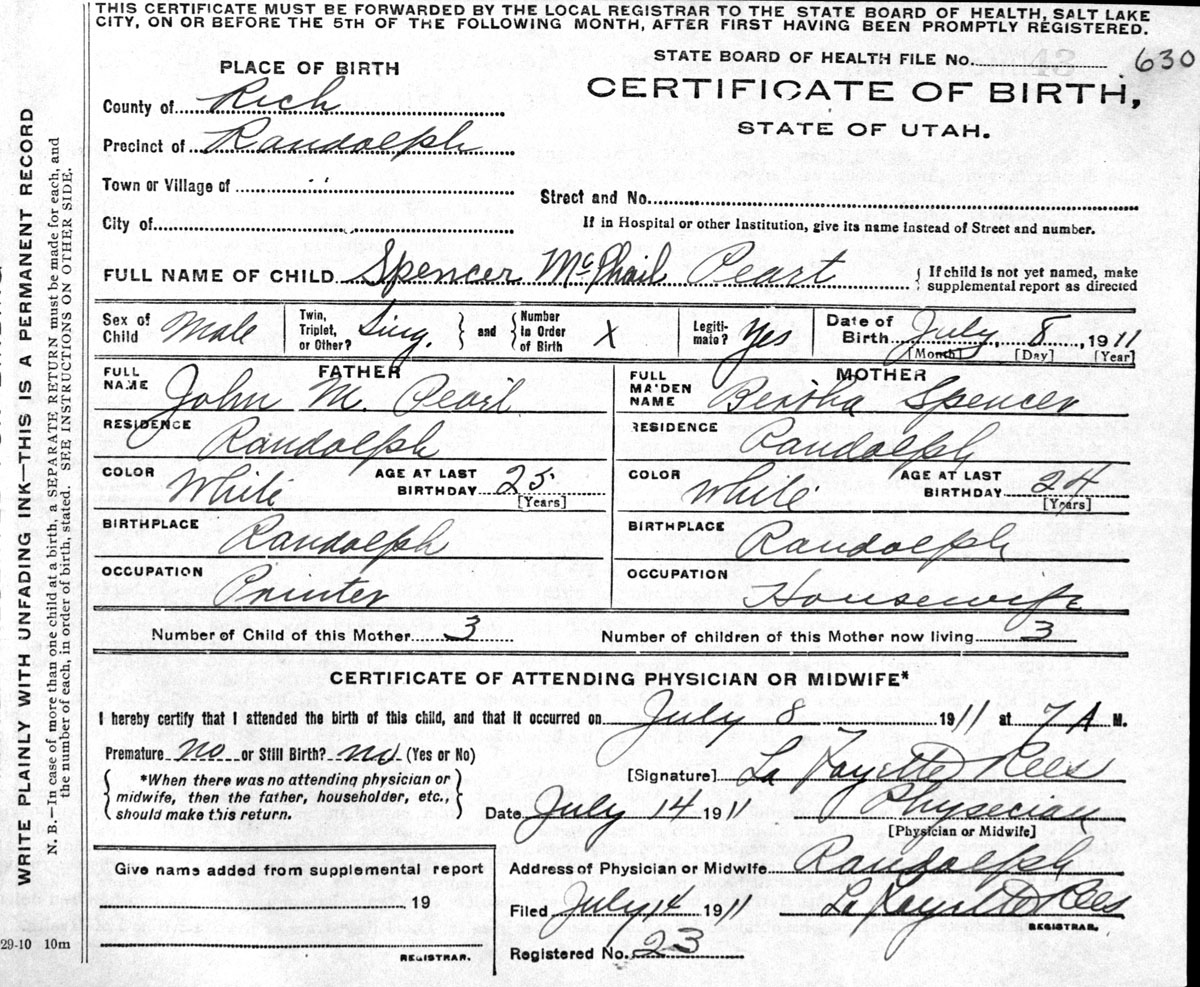 THIS CERTIFICATE MUST BE FORWARDED BY THE LOCAL REGISTRAR TO THE STATE BOARD OF HEALTH, SALT LAKE
CITY, ON OR BEFORE THE 5TH OF THE FOLLOWING MONTH, AFTER FIRST HAVING BEEN PROMPTLY REGISTERED.
STATE BOARD OF HEALTH FILE NO. 630
PLACE OF BIRTH
CERTIFICATE OF BIRTH,
STATE OF UTAH.
County of Rich
Precinct of Randolph
Town or Village of
Street and No.
City of
If in Hospital or other Institution, give its name instead of Street and number.
FULL NAME OF CHILD Spencer McPhail Peart
{ If child is not yet named, make
supplemental report as directed
Sex of Child Male
Twin, Triplet, or Other? Sing. } and { Number in Order of Birth X
Legiti-mate? Yes
Date of Birth July 8, 1911
[Month] [Day] [Year]
FATHER
FULL NAME John M. Peart
RESIDENCE Randolph
COLOR White AGE AT LAST BIRTHDAY 25 [Years]
BIRTHPLACE Randolph
OCCUPATION Printer
MOTHER
FULL MAIDEN NAME Bertha Spencer
RESIDENCE Randolph
COLOR White AGE AT LAST BIRTHDAY 24 [Years]
BIRTHPLACE Randolph
OCCUPATION Housewife
Number of Child of this Mother 3 Number of children of this Mother now living 3
CERTIFICATE OF ATTENDING PHYSICIAN OR MIDWIFE*
I hereby certify that I attended the birth of this child, and that it occurred on July 8 1911 at 7 A M.
Premature no or Still Birth? no (Yes or No)
{ *When there was no attending physician or
midwife, then the father, householder, etc.,
should make this return. }
[Signature] La Fayette Rees
Date July 14 1911 Physecian
[Physician or Midwife]
Address of Physician or Midwife Randolph
Filed July 14 1911 La Fayette Rees
REGISTRAR.
Registered No. 23
Give name added from supplemental report
19
REGISTRAR.
29-10 10m
WRITE PLAINLY WITH UNFADING INK—THIS IS A PERMANENT RECORD
N. B.—In case of more than one child at a birth, a SEPARATE RETURN must be made for each, and
the number of each, in order of birth, stated. SEE INSTRUCTIONS ON OTHER SIDE.